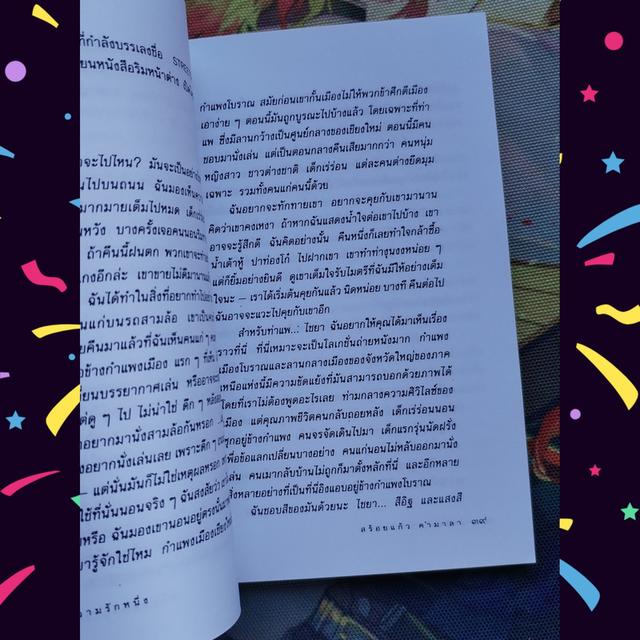 ที่กำลังบรรเลงชื่อ
ยนหนังสือริมหน้าต่าง
จะไปไหน? มันจะเป็นอย่าง
นไปบนถนน ฉันมองเห็น
มากมายเต็มไปหมด เด็กเร่
หวัง บางครั้งเจอคนนอน
ถ้าคืนนี้ฝนตก พวกเขาจะทำ
กงอีกล่ะ เขาขายไม่ดีมานาน
ฉันได้ทำในสิ่งที่อยากทำ
นแก่บนรถสามล้อ เขาเป็น
ยคืนมาแล้วที่ฉันเห็นคนแก่ ๆ
ข้างกำแพงเมือง แรก ๆ ที่
ยนบรรยากาศเล่น หรืออาจจะ
ดู ๆ ไป ไม่น่าใช่ ดึก ๆ
อยากมานั่งสามล้อกันหรอก
งอยากนั่งเล่นเลย เพราะดึก ๆ
— แต่นั่นมันก็ไม่ใช่เหตุผลหรอก
ใช้ที่นั่นนอนจริง ๆ ฉันสงสัยว่า
หรือ ฉันมองเขานอนอยู่ตรงนั้น
ารู้จักใช่ไหม กำแพงเมืองเชียงใหม่
ามรักหนึ่ง
กำแพงโบราณ สมัยก่อนเขากั้นเมืองไม่ให้พวกข้าศึกตีเมือง
เอาง่าย ๆ ตอนนี้มันถูกบูรณะไปบ้างแล้ว โดยเฉพาะที่ท่า
แพ ซึ่งมีลานกว้างเป็นศูนย์กลางของเชียงใหม่ ตอนนี้มีคน
ชอบมานั่งเล่น แต่เป็นตอนกลางคืนเสียมากกว่า คนหนุ่ม
หญิงสาว ชาวต่างชาติ เด็กเร่ร่อน แต่ละคนต่างยึดมุม
เฉพาะ รวมทั้งคนแก่คนนี้ด้วย
ฉันอยากจะทักทายเขา อยากจะคุยกับเขามานาน
คิดว่าเขาคงเหงา ถ้าหากฉันแสดงน้ำใจต่อเขาไปบ้าง เขา
อาจจะรู้สึกดี ฉันคิดอย่างนั้น คืนหนึ่งก็เลยทำใจกล้าซื้อ
น้ำเต้าหู้ ปาท่องโก๋ ไปฝากเขา เขาทำท่างุนงงหน่อย ๆ
แต่ก็ยิ้มอย่างยินดี ดูเขาเต็มใจรับไมตรีที่ฉันมีให้อย่างเต็ม
ใจนะ — เราได้เริ่มต้นคุยกันแล้ว นิดหน่อย บางที คืนต่อไป
ฉันอาจจะแวะไปคุยกับเขาอีก
สำหรับท่าแพ..: ไชยา ฉันอยากให้คุณได้มาเห็นเรื่อง
ราวที่นี่ ที่นี่เหมาะจะเป็นโลเกชั่นถ่ายหนังมาก กำแพง
เมืองโบราณและลานกลางเมืองของจังหวัดใหญ่ของภาค
เหนือแห่งนี้มีความขัดแย้งที่มันสามารถบอกด้วยภาพได้
โดยที่เราไม่ต้องพูดอะไรเลย ท่ามกลางความศิวิไลซ์ของ
เมือง แต่คุณภาพชีวิตคนกลับถอยหลัง เด็กเร่ร่อนนอน
ซุกอยู่ข้างกำแพง คนจรจัดเดินไปมา เด็กแรกรุ่นนัดฝรั่ง
เพื่อข้อแลกเปลี่ยนบางอย่าง คนแก่นอนไม่หลับออกมานั่ง
เล่น คนเมากลับบ้านไม่ถูกก็มาตั้งหลักที่นี่ และอีกหลาย
สิ่งหลายอย่างที่เป็นที่นี่อิงแอบอยู่ข้างกำแพงโบราณ
ฉันชอบสีของมันด้วยนะ ไชยา... สีอิฐ และแสงสี
สร้อยแก้ว คำมาลา ๓๙